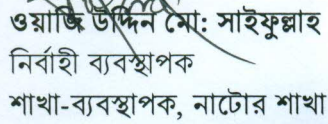 ওয়াজি উদ্দিন মো: সাইফুল্লাহ
নির্বাহী ব্যবস্থাপক
শাখা-ব্যবস্থাপক, নাটোর শাখা